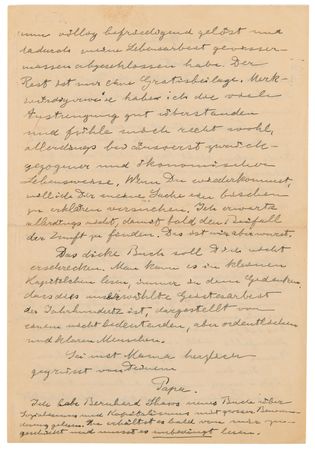 nun völlig befriedigend gelöst und
dadurch meine Lebensarbeit gewisser-
massen abgeschlossen habe. Der
Rest ist nur eine Gratisbeilage. Merk-
würdigerweise habe ich die viele
Anstrengung gut überstanden
und fühle mich recht wohl,
allerdings bei äusserst zurück-
gezogener und ökonomischer
Lebensweise. Wenn Du wiederkommst,
will ich Dir meine Sache ein bischen
zu erklären versuchen. Ich erwarte
allerdings nicht, damit bald den Beifall
der Zunft zu finden. Das ist
Das dicke Buch soll Dich nicht
erschrecken. Man kann es in kleinen
Kapitelchen lesen, immer in dem Gedanken,
dass dies Geistesarbeit
des Jahrhunderts ist, dargestellt von
einem nicht bedeutenden, aber ordentlichen
und klaren Menschen.
Sei mit Mama herzlich
gegrüsst von Deinem
Papa.
Ich habe Bernhard Shaws neues Buch über
Sozialismus und Kapitalismus mit grosser Bewun-
derung gelesen. Du erhältst es bald von mir zu-
geschickt und musst es unbedingt lesen.